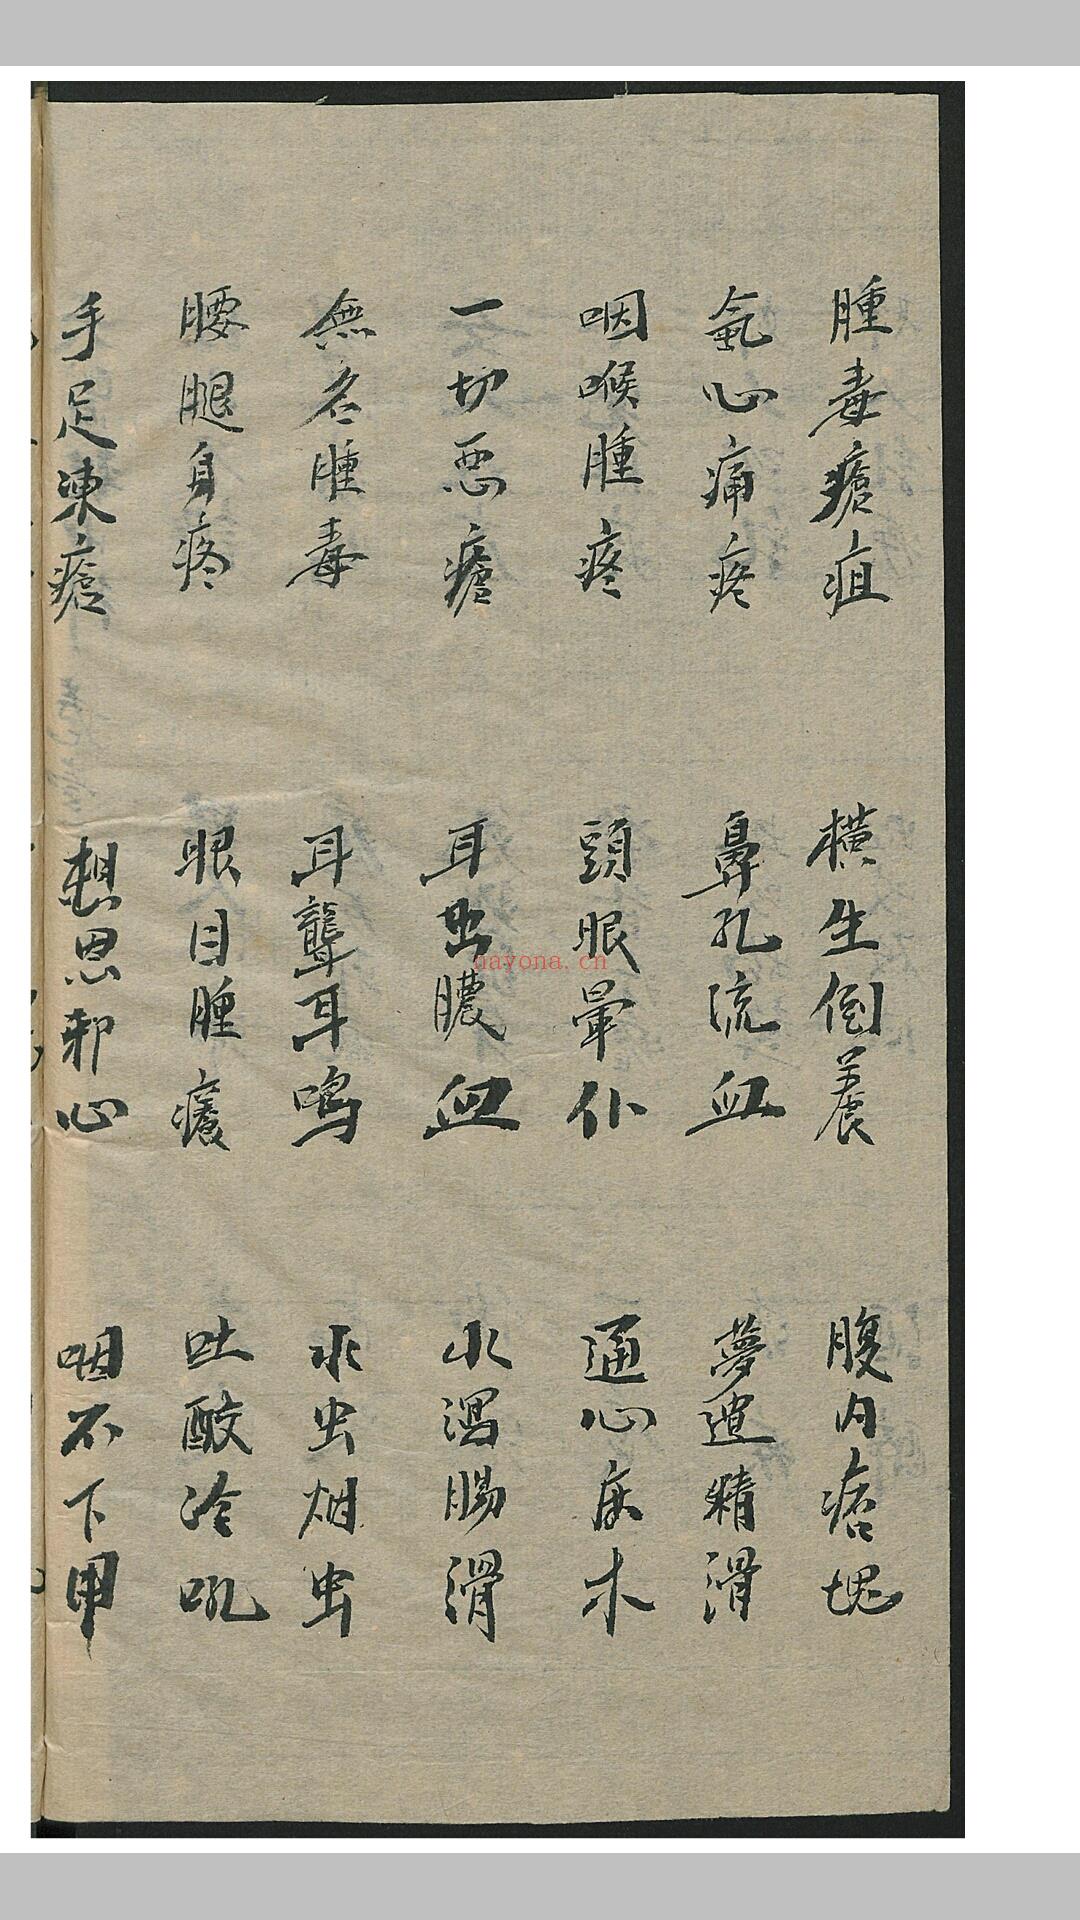 腫毒瘡疽 横生倒養 腹内痞塊
氣心痛疼 鼻孔流血 夢遗精滑
咽喉腫疼 頭眼暈仆 通心床木
一切惡瘡 耳出膿血 水瀉腸滑
無名腫毒 耳聾耳鸣 水虫烟虫
腰腿身疼 眼目腫癢 吐酸冷吼
手足凍瘡 想思邪心 咽不下
nayona.cn